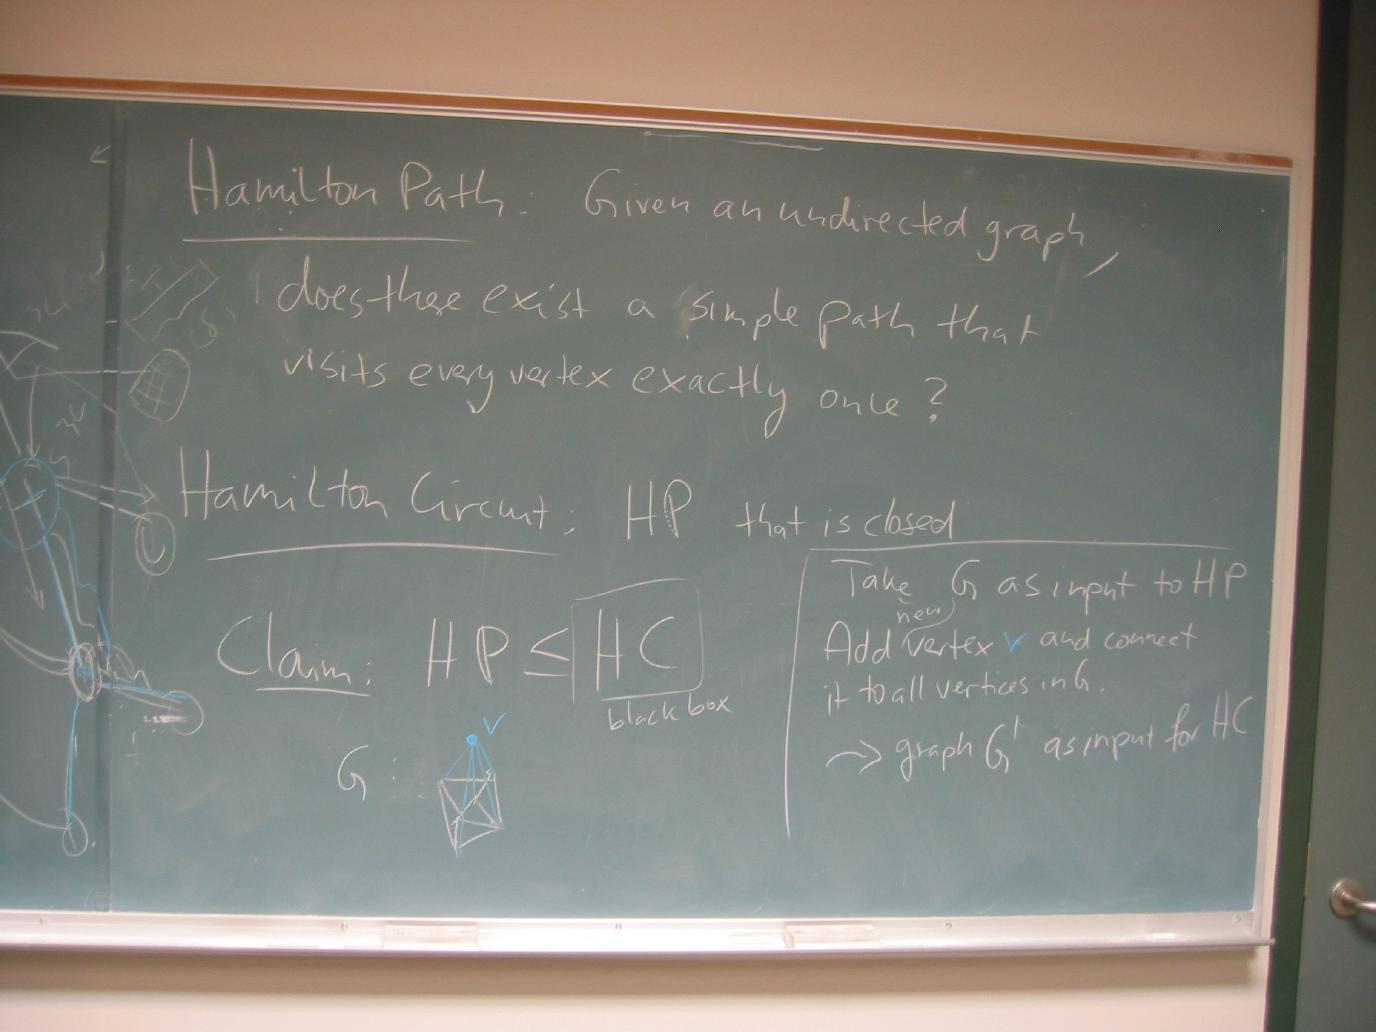 Hamilton Path: Given an undirected graph,
does there exist a simple path that
visits every vertex exactly once?
Hamilton Circuit: HP that is closed
Claim: HP ≤ HC
black box
G: v
Take G as input to HP
new
Add vertex v and connect
it to all vertices in G.
→ graph G' as input for HC